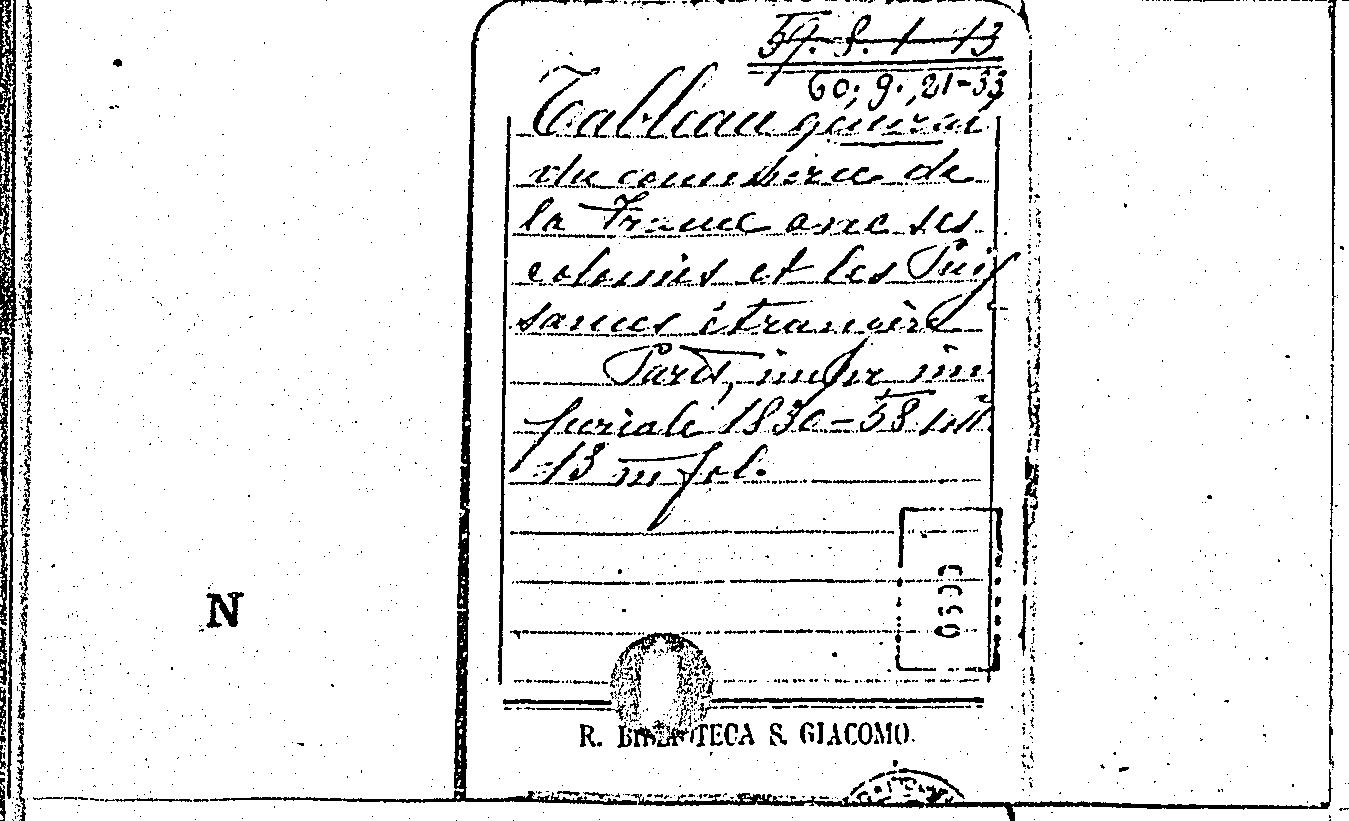 59. 8. 1-13
60. 9. 21-33
Tableau général
du commerce de
la France avec ses
colonies et les Puis
sances étrangère
Paris, impr im
periale 1830-58
13 in fol.
N
R. BIBLIOTECA S. GIACOMO.